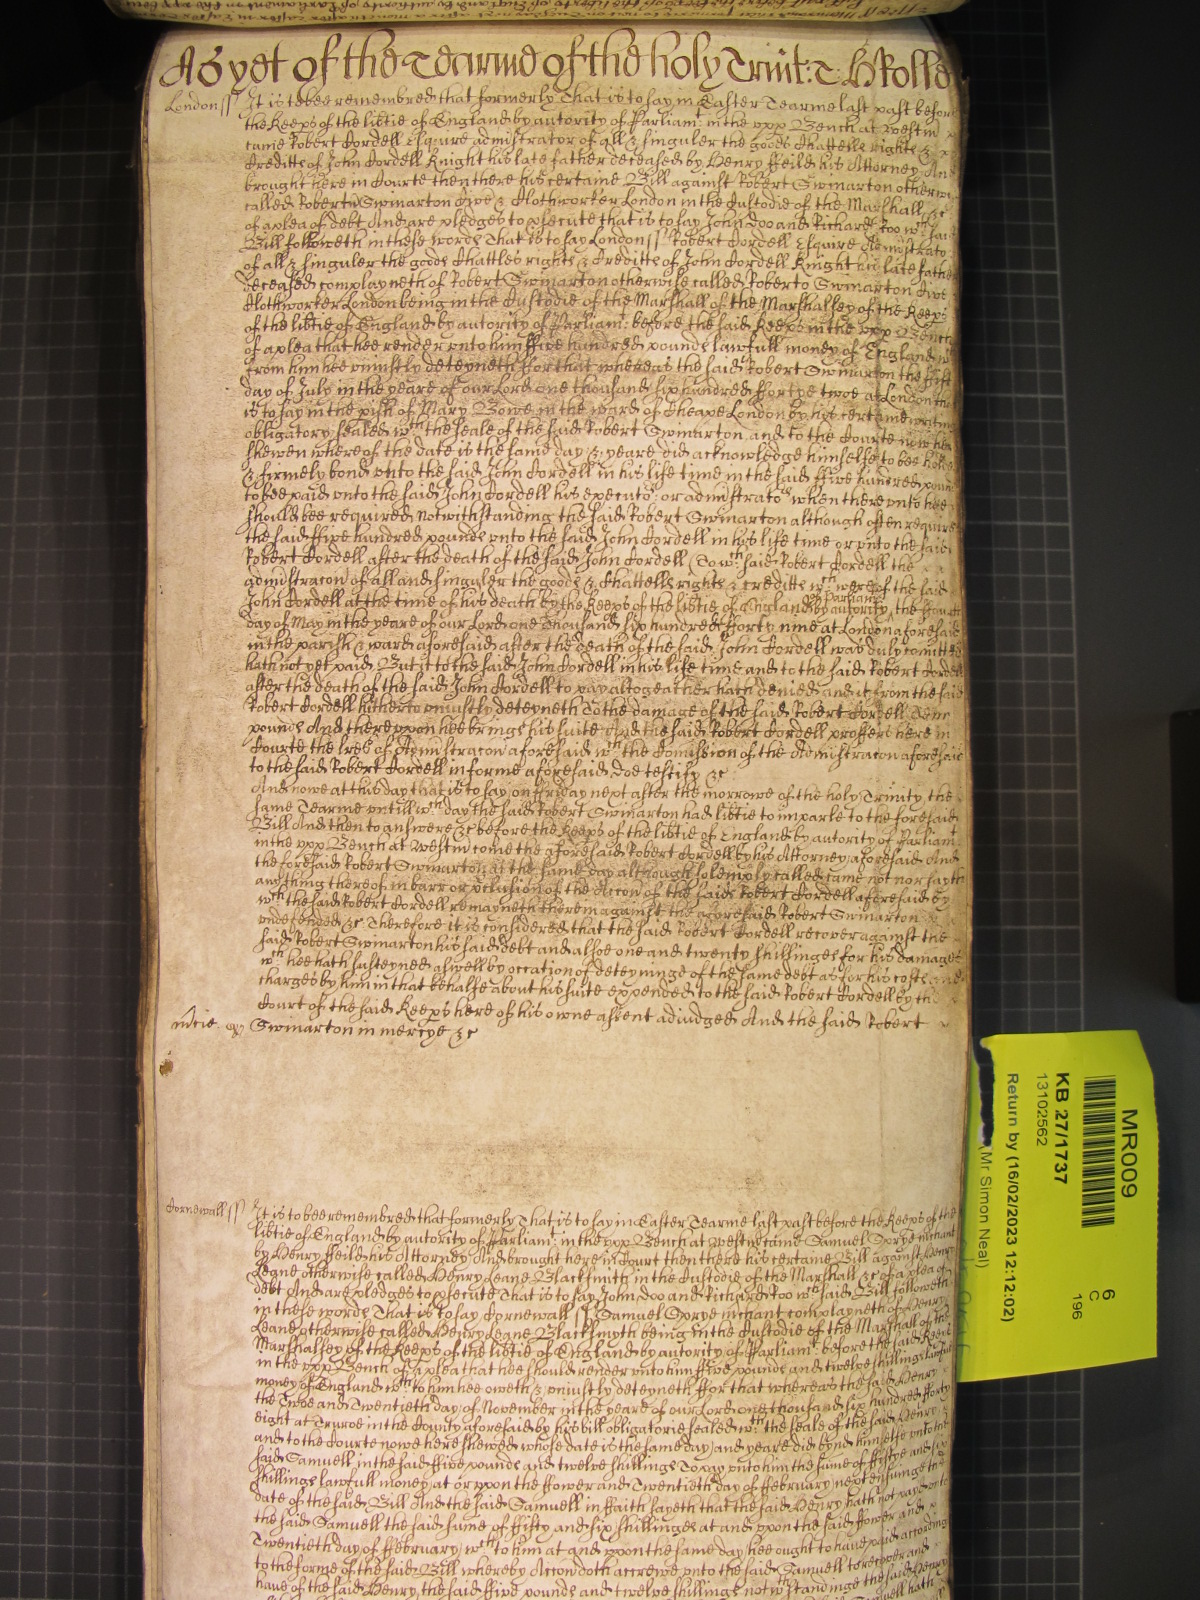 As yet of the Tearme of the holy Trinit: T: H Rolle
London ss It is to bee remembred that formerly That is to say in Easter Tearme last past before
the Keeps of the libtie of England by autority of Parliamt: in the vpp Bench at Westm
came Robert Cordell Esquire admistrator of all & singuler the goods Chattells rights &
Creditts of John Cordell Knight his late father deceased by Henry Feild his Attorney And
brought here in Courte then there his certaine Bill against Robert Swinarton otherwise
called Robert Swinarton Cive & Clothworker London in the Custodie of the Marshall &c
of a plea of debt And are pledges to psecute that is to say John Doo and Richard Roo wch said
Bill followeth in these words That is to say London ss Robert Cordell Esquire Admistrator
of all & singuler the goods Chattles rights & Creditts of John Cordell Knight his late father
deceased complayneth of Robert Swinarton otherwise called Roberto Swinarton Cive
Clothworker London being in the Custodie of the Marshall of the Marshalsey of the Keeps
of the libtie of England by autority of Parliamt: before the said Keeps in the vpp Bench
of a plea that hee render vnto him ffive hundred pounds lawfull money of England wch
from him hee vniustly deteyneth ffor that whereas the said Robert Swinarton the
day of July in the yeare of our Lord one thousand six hundred fortye twoe at London that
is to say in the pish of Mary Bowe in the ward of Cheape London by his certaine writing
obligatory sealed wth the seale of the said Robert Swinarton and to the Courte now here
shewen whereof the date is the same day & yeare did acknowledge himselfe to bee holden
& firmely bond vnto the said John Cordell in his life time in the said ffive hundred pounds
to bee paid vnto the said John Cordell his executors or admistrators when there vnto hee
should bee required Notwithstanding the said Robert Swinarton although often required
the said ffive hundred pounds vnto the said John Cordell in his life time or vnto the said
Robert Cordell after the death of the said John Cordell (To wch said Robert Cordell the
admistracon of all and singuler the goods & Chattells rights & creditts wch were of the said
John Cordell at the time of his death by the Keeps of the libtie of England by autority of Parliamt the
day of May in the yeare of our Lord one thousand six hundred fforty nine at London aforesaid
in the parish & ward aforesaid after the death of the said John Cordell was duly comitted
hath not yet paid But it to the said John Cordell in his life time and to the said Robert Cordell
after the death of the said John Cordell to pay altogeather hath denied and it from the said
Robert Cordell hitherto vniustly deteyneth To the damage of the said Robert Cordell Tenn
pounds And there vpon hee brings his suite And the said Robert Cordell proffers here in
Courte the lres of Admistracon aforesaid wch the Comission of the Admistracon aforesaid
to the said Robert Cordell in forme aforesaid doe testify &c
And nowe at this day that is to say on Friday next after the morrowe of the holy Trinity the
same Tearme vntill wch day the said Robert Swinarton had libtie to imparle to the foresaid
Bill And then to answere &c before the Keeps of the libtie of England by autority of Parliamt:
in the vpp Bench at Westm come the aforesaid Robert Cordell by his Attorney aforesaid And
the foresaid Robert Swinarton at the same day although solemply called came not nor sayth
any thing thereof in barr or pclusion of the Accon of the said Robert Cordell aforesaid by
wch the said Robert Cordell remayneth therein against the aforesaid Robert Swinarton
vndefended &c Therefore it is considered that the said Robert Cordell recover against the
said Robert Swinarton his said debt and alsoe one and twenty shillings for his damages
wch hee hath susteyned aswell by occation of deteyninge of the same debt as for his costs and
charges by him in that behalfe about his suite expended to the said Robert Cordell by the
Court of the said Keeps here of his owne assent adiudged And the said Robert
mcie Swinarton in mercye &c
Cornewall ss It is to bee remembred that formerly That is to say in Easter Tearme last past before the Keeps of the
libtie of England by autority of Parliamt: in the vpp Bench at Westm came Samuel Sprye mchant
by Henry Feild his Attorney And brought here in Court then there his certaine Bill against Henry
Leane otherwise called Henry Leane Blacksmith in the Custodie of the Marshall &c of a plea of
debt And are pledges to psecute That is to say John Doo and Richard Roo wch said Bill followeth
in these words That is to say Cornewall ss Samuel Sprye mchant complayneth of Henry
Leane otherwise called Henry Leane Blacksmyth being in the Custodie of the Marshall of the
Marshallsey of the Keeps of the libtie of England by autority of Parliamt: before the said Keeps
in the vpp Bench of a plea that hee should render vnto him ffive pounds and twelve shillings lawfull
money of England wch to him hee oweth & vniustly deteyneth ffor that whereas the said Henry
the Twoe and Twentieth day of November in the yeare of our Lord one thousand six hundred fforty
eight at Truroe in the County aforesaid by his bill obligatorie sealed wth the seale of the said Henry
and to the Courte nowe here shewed whose date is the same day and yeare did bynd himselfe vnto the
said Samuell in the said ffive pounds and twelve shillings To pay vnto him the sume of fiftye and six
shillings lawfull money at or vpon the ffower and Twentieth day of ffebruary next ensuinge the
date of the said Bill And the said Samuell in ffaith sayeth that the said Henry hath not payd vnto
the said Samuell the said sume of ffifty and six shillings at and vpon the said ffower and
Twentieth day of ffebruary wch to him at and vpon the same day hee ought to have paid according
to the forme of the said Bill whereby Accon doth accrewe vnto the said Samuell to recover and
have of the said Henry the said ffive pounds and twelve shillings notwthstandinge the said Henry
MR009
KB 27/1737
13102562
Return by (16/02/2023 12:12:02)
(Mr Simon Neal)
6
C
196